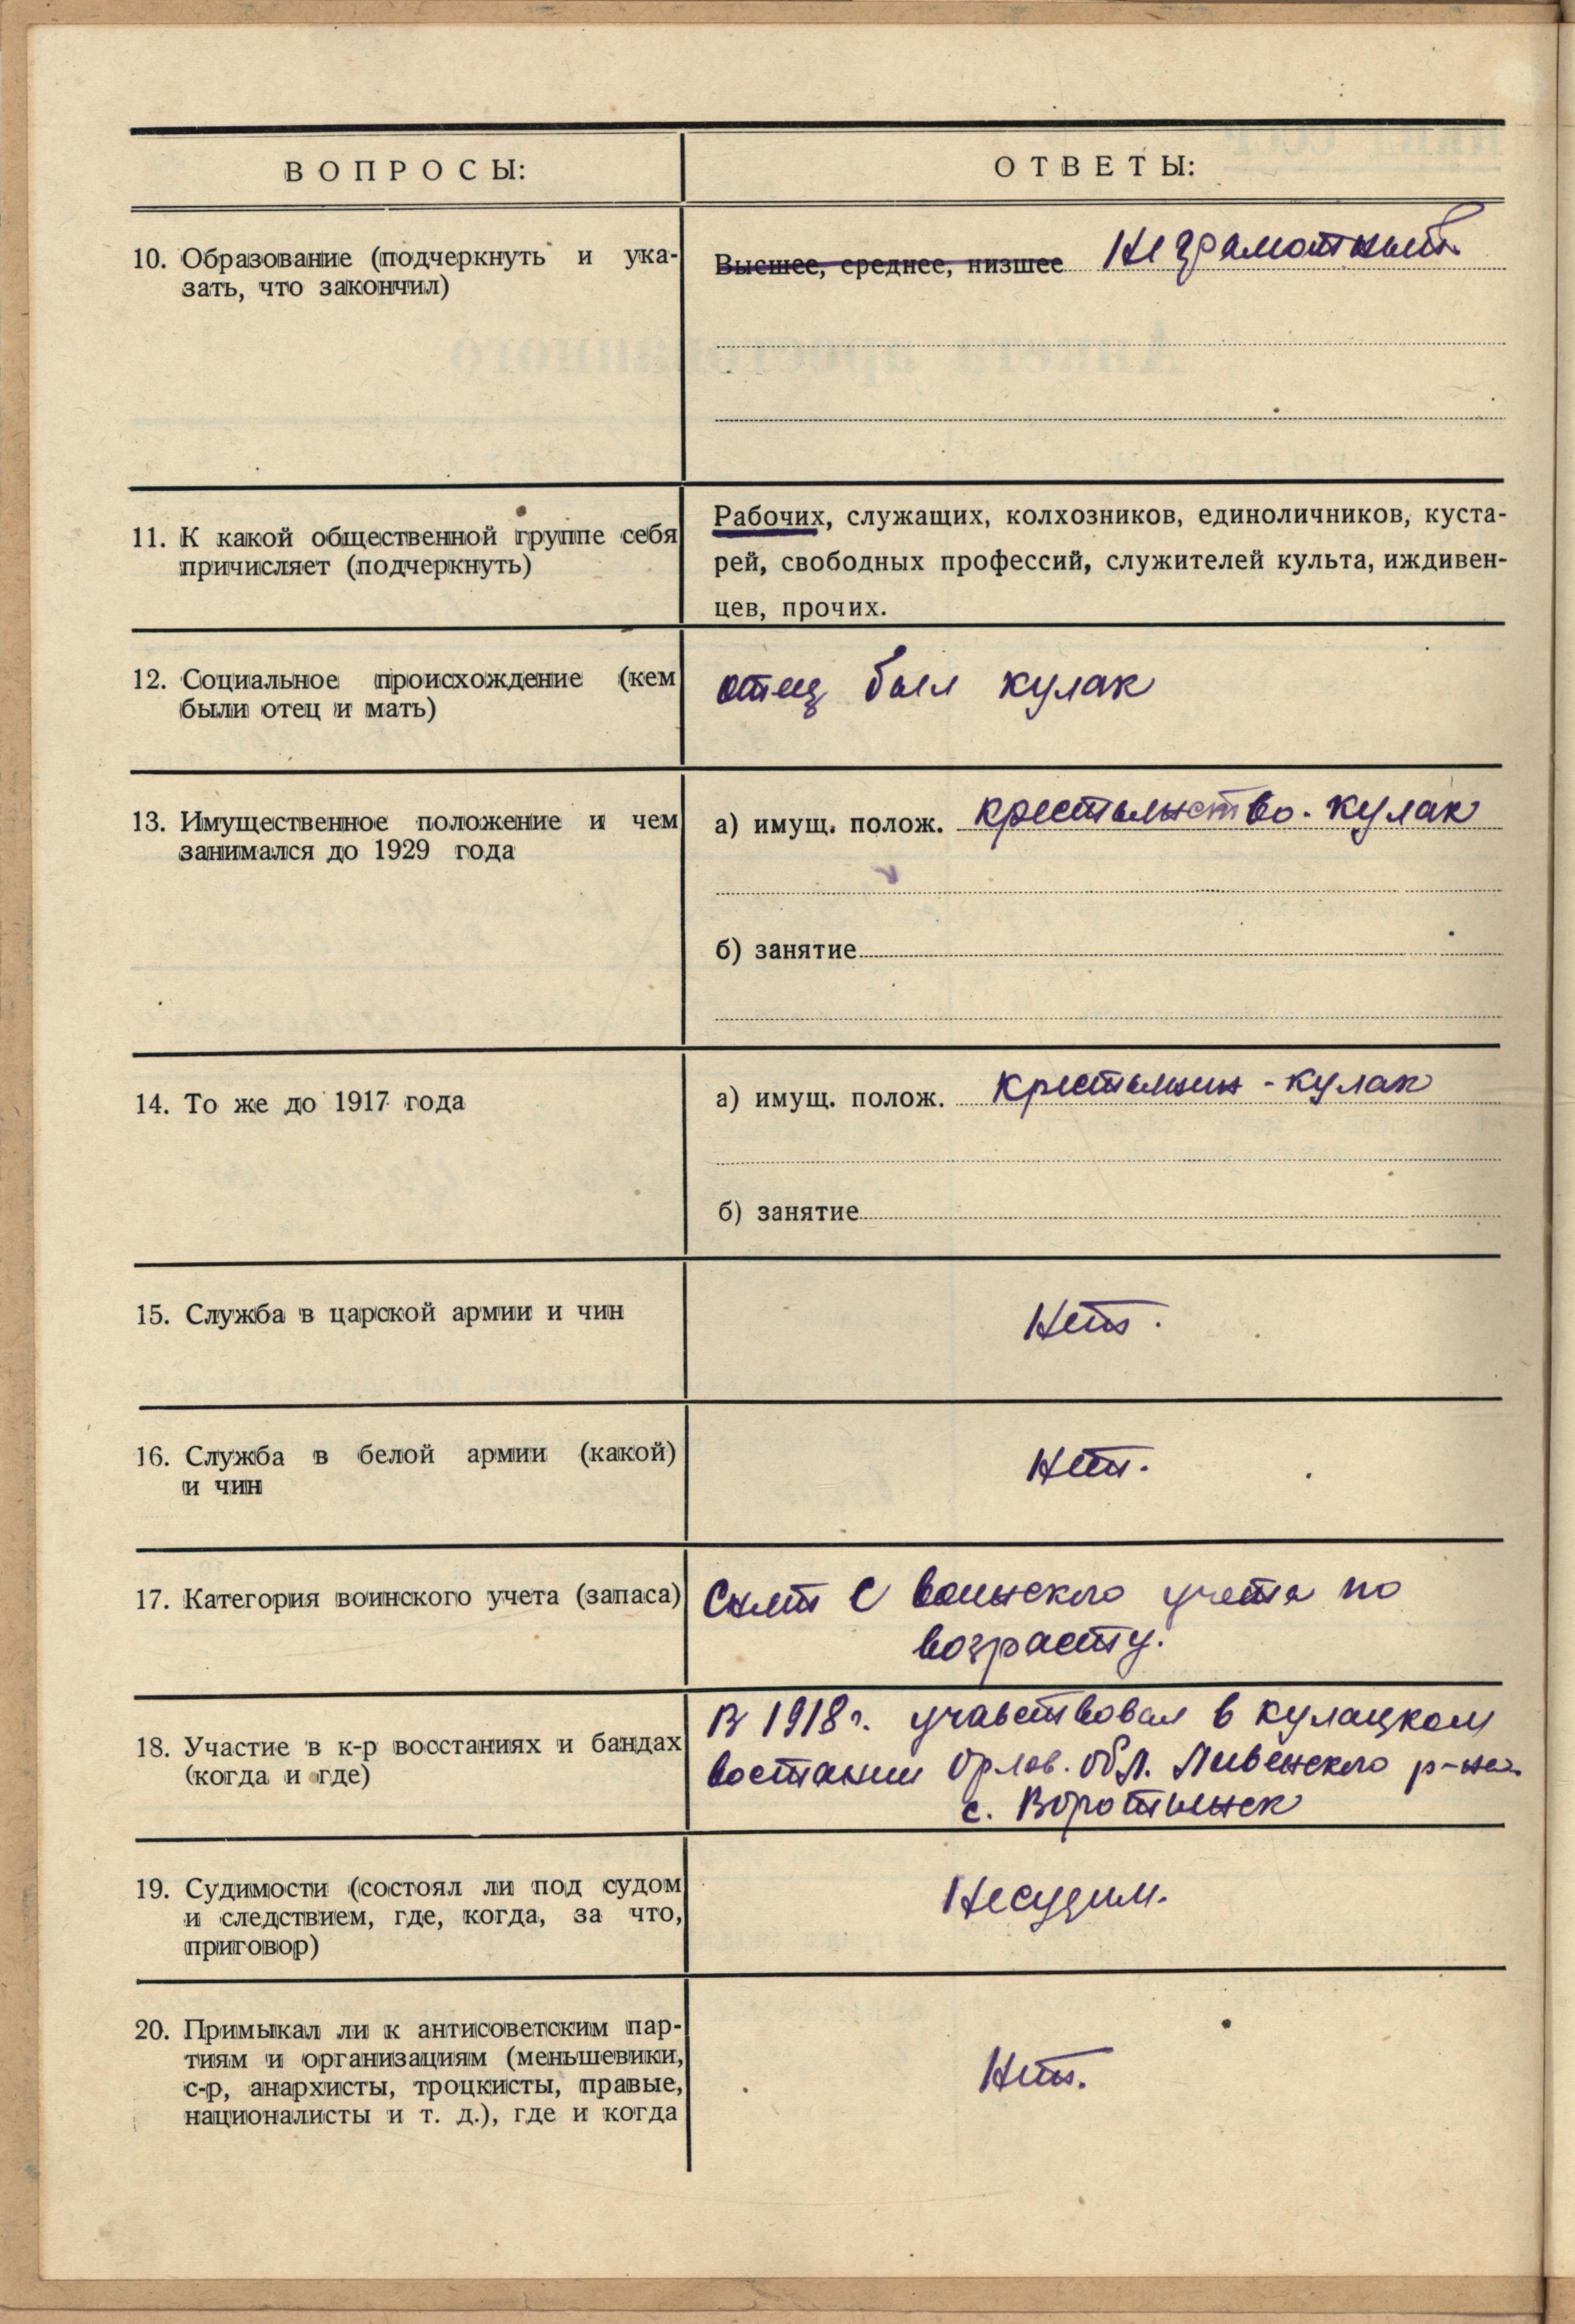 ВОПРОСЫ:
ОТВЕТЫ:
10. Образование (подчеркнуть и ука-
зать, что закончил)
Высшее, среднее, низшее Неграмотный
11. К какой общественной группе себя
причисляет (подчеркнуть)
Рабочих, служащих, колхозников, единоличников, куста-
рей, свободных профессий, служителей культа, иждивен-
цев, прочих.
12. Социальное происхождение (кем
были отец и мать)
отец был кулак
13. Имущественное положение и чем
занимался до 1929 года
а) имущ. полож. крестьянство. кулак
б) занятие
14. То же до 1917 года
а) имущ. полож. крестьянин - кулак
б) занятие
15. Служба в царской армии и чин
Нет.
16. Служба в белой армии (какой)
и чин
Нет.
17. Категория воинского учета (запаса)
Снят с воинского учета по
возрасту.
18. Участие в к-р восстаниях и бандах
(когда и где)
В 1918 г. учавствовал в кулацком
востании Орлов. обл. Ливенского р-на
с. Воротынск
19. Судимости (состоял ли под судом
и следствием, где, когда, за что,
приговор)
Несудим.
20. Примыкал ли к антисоветским пар-
тиям и организациям (меньшевики,
с-р, анархисты, троцкисты, правые,
националисты и т. д.), где и когда
Нет.